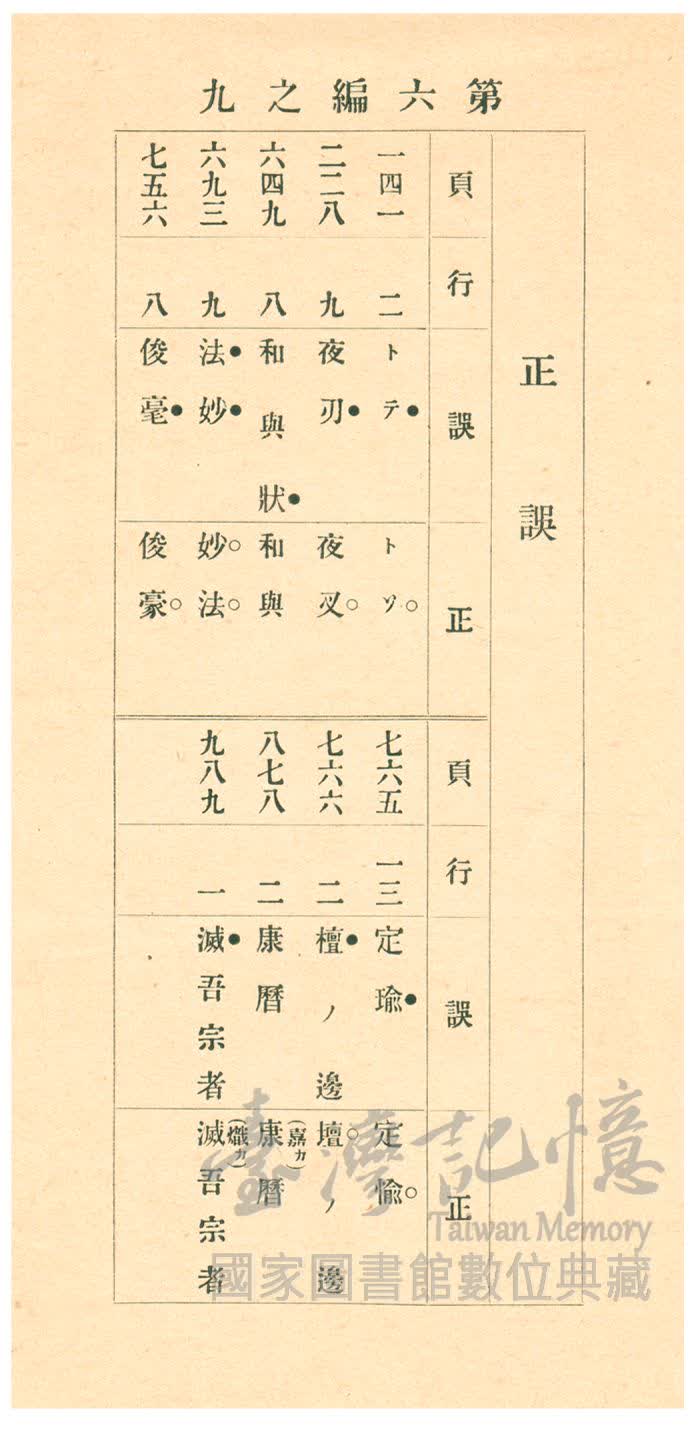 第六編之九
正誤
頁 行 誤 正
一四一 二 トテ トソ
二二八 九 夜刃 夜叉
六四九 八 和與狀 和與
六九三 九 法妙 妙法
七五六 八 俊毫 俊豪
頁 行 誤 正
七六五 一三 定瑜 定愉
七六六 二 檀ノ邊 壇ノ邊
八七八 二 康曆 康曆(嘉カ)
九八九 一 滅吾宗者 滅吾宗者(熾カ)
臺灣記憶
Taiwan Memory
國家圖書館數位典藏